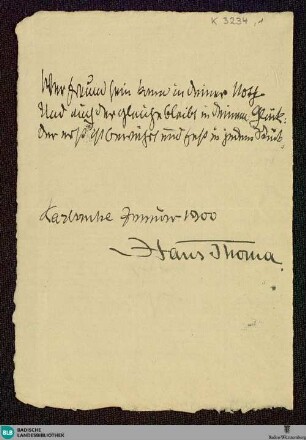 K 3234,1
Wer Freund sein kann in deiner Noth
Und auch der gleiche bleibt in deinem Glück:
Der erst ist bewährt und fest in jedem Stück.
Karlsruhe Januar 1900
Hans Thoma.
BLB
BADISCHE
LANDESBIBLIOTHEK
Baden-Württemberg